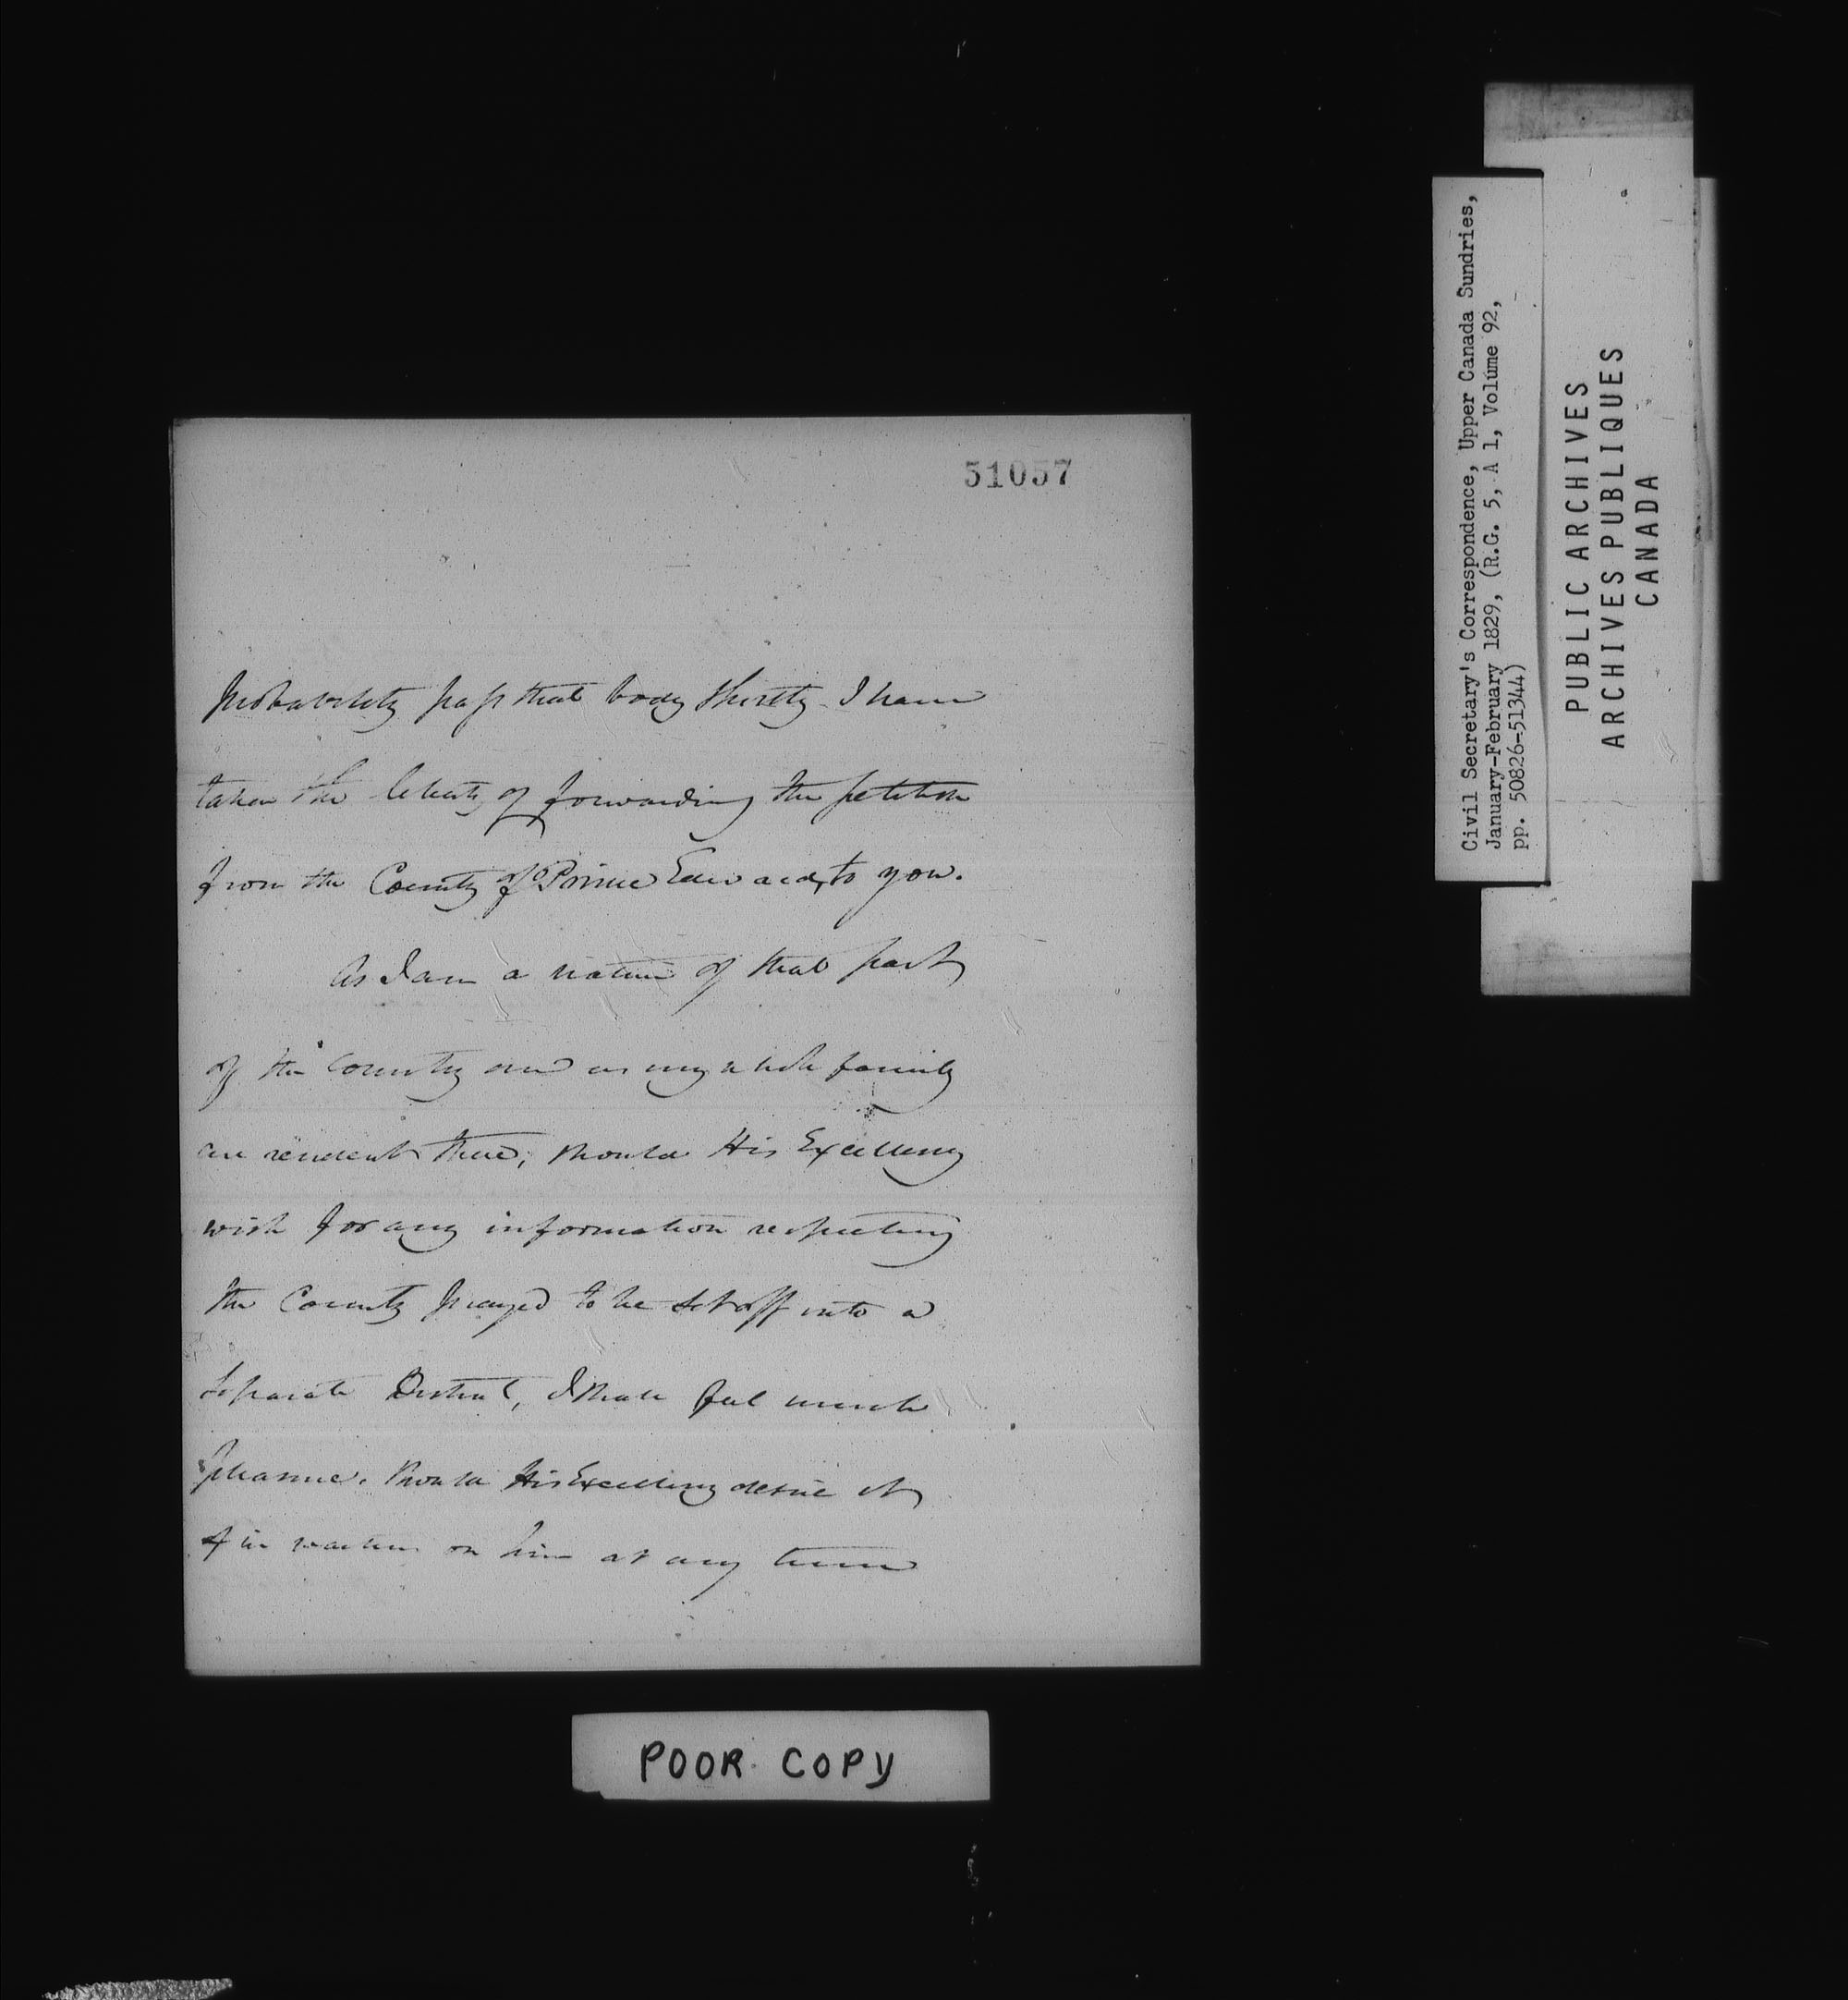 51057
probability pass that body shortly. I have
taken the liberty of forwarding the petition
from the County of Prince Edward, to you.
As I am a native of that part
of the Country and as my whole family
are resident there; should His Excellency
wish for any information respecting
the County prayed to be set off into a
separate District, I shall feel much
pleasure, should His Excellency desire it
in waiting on him at any time
POOR COPY
Civil Secretary's Correspondence, Upper Canada Sundries,
January-February 1829, (R.G. 5, A 1, Volume 92,
pp. 50826-51344)
PUBLIC ARCHIVES
ARCHIVES PUBLIQUES
CANADA